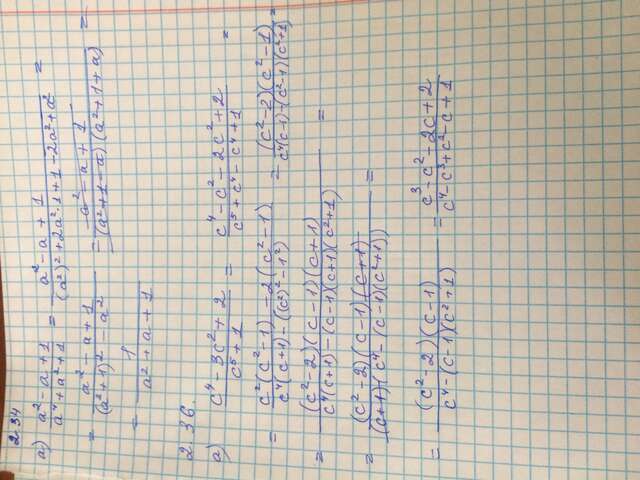 2.34
а) (a² - a + 1)/(a⁴ + a² + 1) = (a² - a + 1)/((a²)² + 2a²·1 + 1 - 2a² + a²) =
= (a² - a + 1)/((a² + 1)² - a²) = (a² - a + 1)/((a² + 1 - a)(a² + 1 + a)) =
= 1/(a² + a + 1)
2.36.
а) (c⁴ - 3c² + 2)/(c⁵ + 1) = (c⁴ - c² - 2c² + 2)/(c⁵ + c⁴ - c⁴ + 1) =
= (c²(c² - 1) - 2(c² - 1))/(c⁴(c + 1) - ((c²)² - 1²)) = ((c² - 2)(c² - 1))/(c⁴(c - 1) - (c² - 1)(c² + 1)) =
= ((c² - 2)(c - 1)(c + 1))/(c⁴(c + 1) - (c - 1)(c + 1)(c² + 1)) =
= ((c² - 2)(c - 1)(c + 1))/((c + 1)(c⁴ - (c - 1)(c² + 1))) =
= ((c² - 2)(c - 1))/(c⁴ - (c - 1)(c² + 1)) = (c³ - c² - 2c + 2)/(c⁴ - c³ + c² - c + 1)